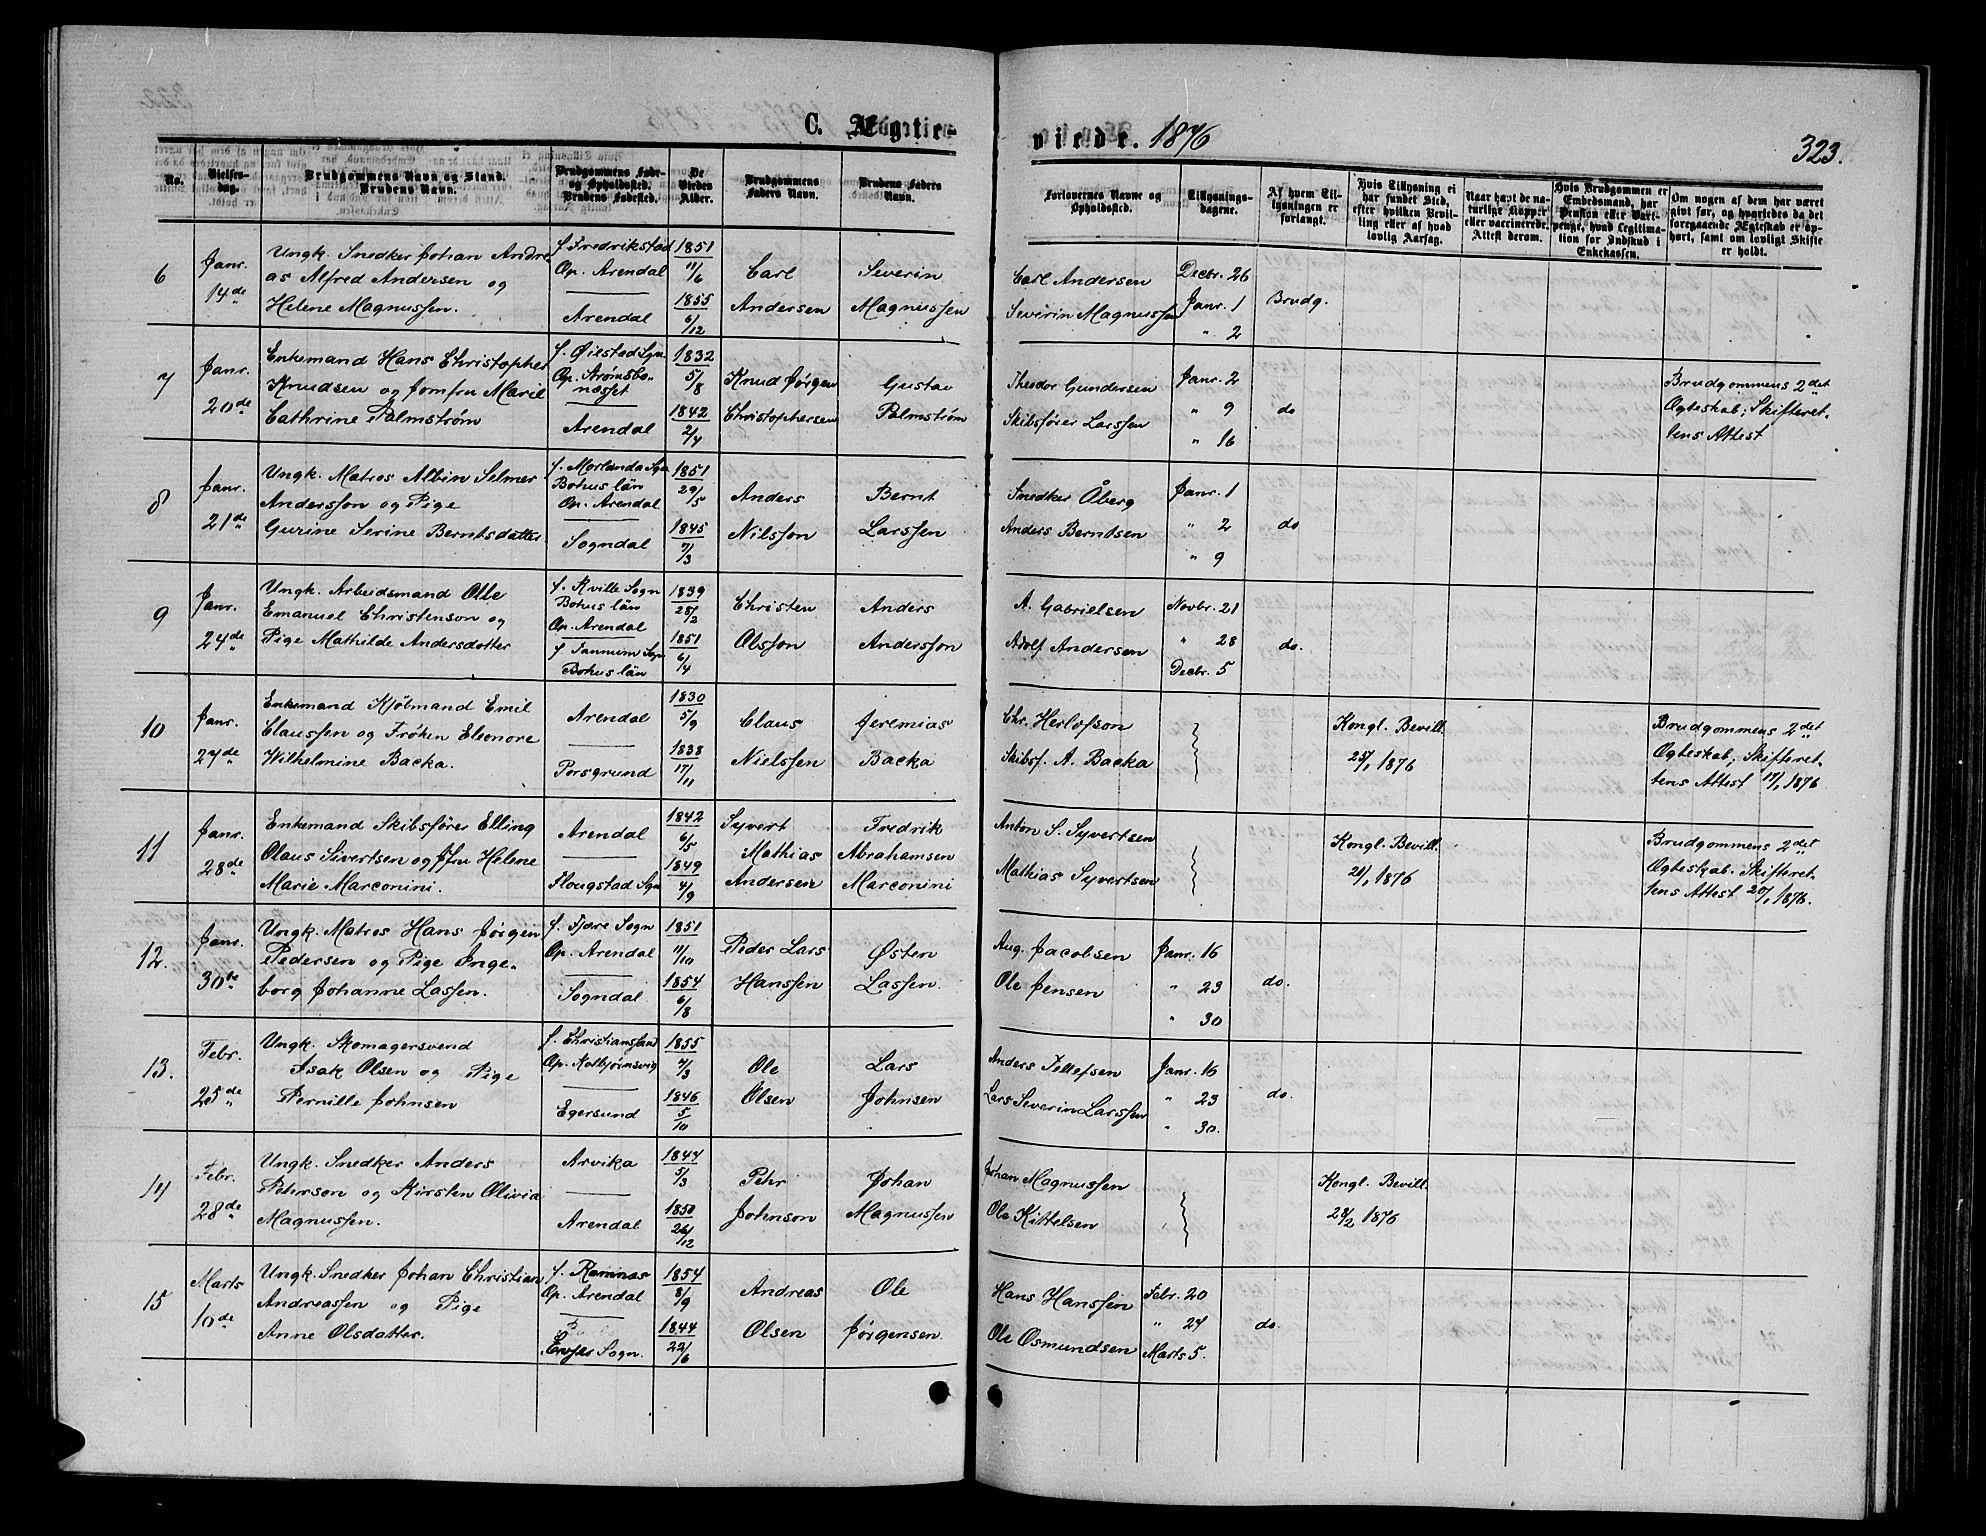 C. Ægtevie-
viede. 1876
323.
No.
Vielses-
dag.
Brudgommens Navn og Stand.
Brudens Navn.
Brudgommens Føde-
og Opholdssted.
Brudens Fødested.
De
Viedes
Alder.
Brudgommens
Faders Navn.
Brudens Faders
Navn.
Forlovernes Navne og
Opholdssted.
Tillysnings-
dagene.
Af hvem Til-
lysningen er
forlangt.
Hvis Tillysning ei
har fundet Sted,
efter hvilken Bevil-
ling eller af hvad
lovlig Aarsag.
Naar havt de na-
turlige Kopper
eller vaccinerede.
Attest derom.
Hvis Brudgommen er
Embedsmand, har
Pension eller Vart-
penge, hvad Legitima-
tion for Indskud i
Enkekassen.
Om nogen af dem har været
givt før, og hvorledes da det
foregaaende Ægteskab er op-
hørt, samt om lovligt Skifte
er holdt.
6
Janr.
14de
Ungk. Snedker Johan Andre
as Alfred Andersen og
Helene Magnussen.
f. Fredrikstad
Op. Arendal
Arendal
1851
11/6
1855
6/12
Carl
Andersen
Severin
Magnussen
Carl Andersen
Severin Magnussen
Decbr. 26
Janr. 1
" 2
Brudg.
7
Janr.
20de
Enkemand Hans Christopher
Knudsen og Jomfru Marie
Cathrine Palmstrøm
f. Øiestad Sgn
Op. Strømsbo-
næsset
Arendal
1832
5/8
1842
2/4
Knud Jørgen
Christophersen
Gustav
Palmstrøm
Theodor Gundersen
Skibsfører Larssen
Janr. 2
" 9
" 16
do
Brudgommens 2det
Ægteskab; Skifteret-
tens Attest
8
Janr.
21de
Ungk. Matros Albin Selmer
Andersson og Pige
Gurine Serine Berntsdatter
f. Morlanda Sgn
Bohus län
Op. Arendal
Sogndal
1851
29/5
1845
7/3
Anders
Nilsson
Bernt
Larssen
Snedker Åberg
Anders Berntsen
Janr. 1
" 2
" 9
do
9
Janr.
24de
Ungk. Arbeidsmand Olle
Emanuel Christenson og
Pige Mathilde Andersdotter
f. Kville Sogn
Bohus län
Op. Arendal
f. Tannum Sgn
Bohus län
1839
25/2
1851
6/4
Christen
Olsson
Anders
Andersson
A. Gabrielsen
Adolf Andersen
Novbr. 21
" 28
Decbr. 5
do.
10
Janr.
27de
Enkemand Kjøbmand Emil
Claussen og Frøken Eleonore
Wilhelmine Backa.
Arendal
Porsgrund
1830
5/9
1838
17/11
Claus
Nielssen
Jeremias
Backa
Chr. Herlofson
Skibsf. A. Backa
Kongl. Bevill.
25/1 1876
Brudgommens 2det
Ægteskab; Skifteret-
tens Attest 17/1 1876
11
Janr.
28de
Enkemand Skibsfører Elling
Olaus Sivertsen og Jfru Helene
Marie Marconini.
Arendal
Flougstad Sgn
1842
6/5
1849
4/9
Syvert
Mathias
Andersen
Fredrik
Abrahamsen
Marconini
Anton S. Syvertsen
Mathias Syvertsen
Kongl. Bevill.
21/1 1876
Brudgommens 2det
Ægteskab. Skifteret-
tens Attest 20/1 1876.
12.
Janr.
30te
Ungk. Matros Hans Jørgen
Pedersen og Pige Inge-
borg Johanne Lassen.
f. Fjære Sogn
Op. Arendal
Sogndal
1851
11/10
1854
6/8
Peder Lars
Hanssen
Østen
Lassen.
Aug. Jacobsen
Ole Jensen
Janr. 16
" 23
" 30
do.
13.
Febr.
25de
Ungk. Skomagersvend
Isak Olsen og Pige
Pernille Johnsen
f. Christianssand
Op. Kolbjørnsvig
Egersund
1855
7/3
1846
5/10
Ole
Olsen
Lars
Johnsen
Anders Tellefsen
Lars Severin Larssen
Janr. 16
" 23
" 30.
do.
14
Febr.
28de
Ungk. Snedker Anders
Pehrson og Kirsten Olivia
Magnussen.
Arvika
Arendal
1844
5/3
1850
26/12
Pehr
Johnson
Johan
Magnussen
Johan Magnussen
Ole Kittelsen
Kongl. Bevill.
28/2 1876
15
Marts
10de
Ungk. Snedker Johan Christian
Andreassen og Pige
Anne Olsdatter.
f. Ramnæs
Op. Arendal
Sogn.
1854
8/9
1844
22/6
Andreas
Olsen
Ole
Jørgensen.
Hans Hanssen
Ole Osmundsen
Febr. 20
" 24
Marts 5.
do.